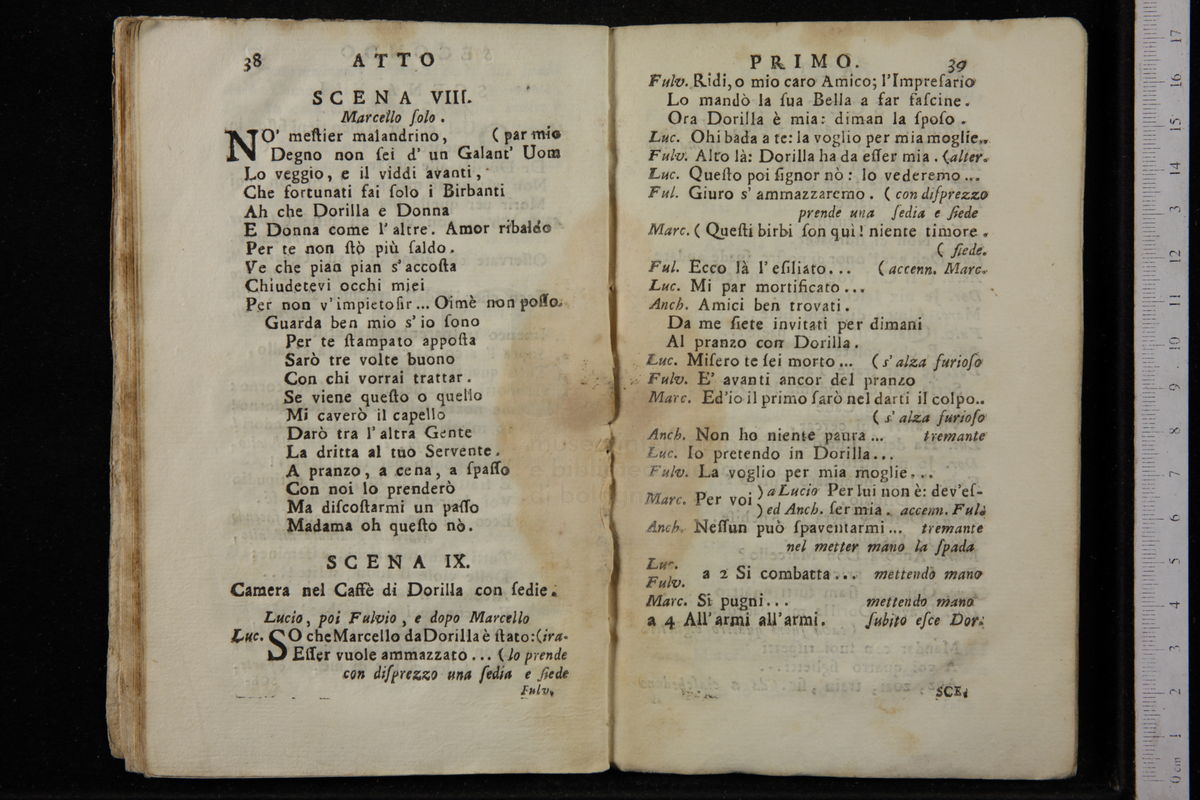 38 ATTO
SCENA VIII.
Marcello ſolo.
NO' meſtier malandrino, (par mio
Degno non ſei d' un Galant' Uom
Lo veggio, e il viddi avanti,
Che fortunati fai ſolo i Birbanti
Ah che Dorilla e Donna
E Donna come l' altre. Amor ribaldo
Per te non ſtò più ſaldo.
Ve che pian pian s' accoſta
Chiudetevi occhi miei
Per non v' impietoſir... Oimè non poſſo.
Guarda ben mio s' io ſono
Per te ſtampato appoſta
Sarò tre volte buono
Con chi vorrai trattar.
Se viene queſto o quello
Mi caverò il capello
Darò tra l' altra Gente
La dritta al tuo Servente.
A pranzo, a cena, a ſpaſſo
Con noi lo prenderò
Ma diſcoſtarmi un paſſo
Madama oh queſto nò.
SCENA IX.
Camera nel Caffè di Dorilla con ſedie.
Lucio, poi Fulvio, e dopo Marcello
Luc. SO che Marcello da Dorilla è ſtato: (ira-
Eſſer vuole ammazzato... (lo prende
con diſprezzo una ſedia e ſiede
Fulv.
PRIMO. 39
Fulv. Ridi, o mio caro Amico; l'Impreſario
Lo mandò la ſua Bella a far faſcine.
Ora Dorilla è mia: diman la ſpoſo.
Luc. Ohi bada a te: la voglio per mia moglie..
Fulv. Alto là: Dorilla ha da eſſer mia. (alter.
Luc. Queſto poi ſignor nò: lo vederemo...
Ful. Giuro s' ammazzaremo. (con diſprezzo
prende una ſedia e ſiede
Marc. (Queſti birbi ſon quì! niente timore.
(ſiede.
Ful. Ecco là l' eſiliato... (accenn. Marc.
Luc. Mi par mortificato...
Anch. Amici ben trovati.
Da me ſiete invitati per dimani
Al pranzo con Dorilla.
Luc. Miſero te ſei morto... (s' alza furioſo
Fulv. E' avanti ancor del pranzo
Marc. Ed'io il primo ſarò nel darti il colpo..
(s' alza furioſo
Anch. Non ho niente paura... tremante
Luc. Io pretendo in Dorilla...
Fulv. La voglio per mia moglie...
Marc. Per voi )a Lucio Per lui non è: dev'eſ-
)ed Anch. ſer mia. accenn. Ful.
Anch. Neſſun può ſpaventarmi... tremante
nel metter mano la ſpada
Luc.
Fulv. a 2 Si combatta... mettendo mano
Marc. Si pugni... mettendo mano
a 4 All' armi all' armi. ſubito eſce Dor.
SCE.